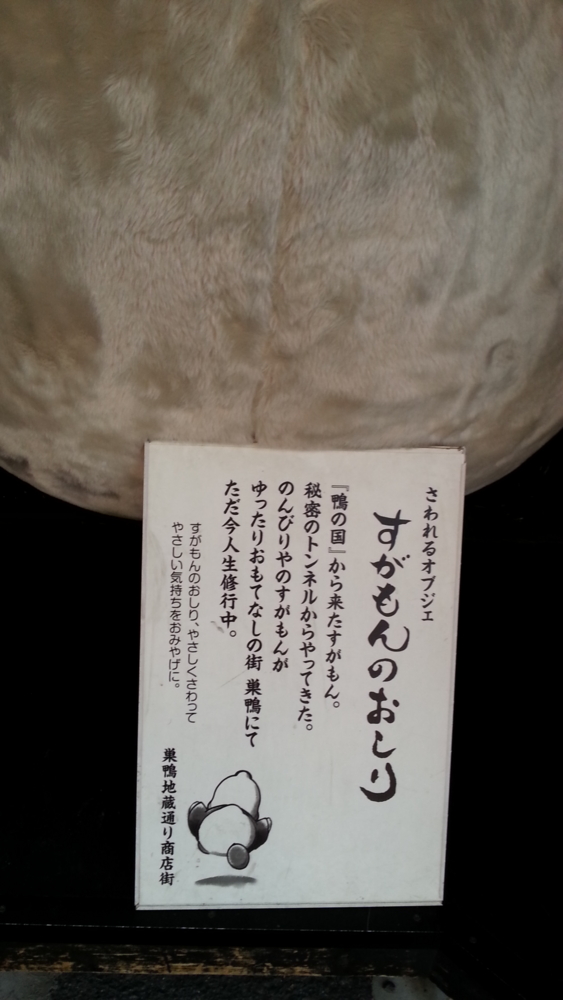 さわれるオブジェ
すがもんのおしり
『鴨の国』から来たすがもん。
秘密のトンネルからやってきた。
のんびりやのすがもんが
ゆったりおもてなしの街 巣鴨にて
ただ今人生修行中。
すがもんのおしり、やさしくさわって
やさしい気持ちをおみやげに。
巣鴨地蔵通り商店街